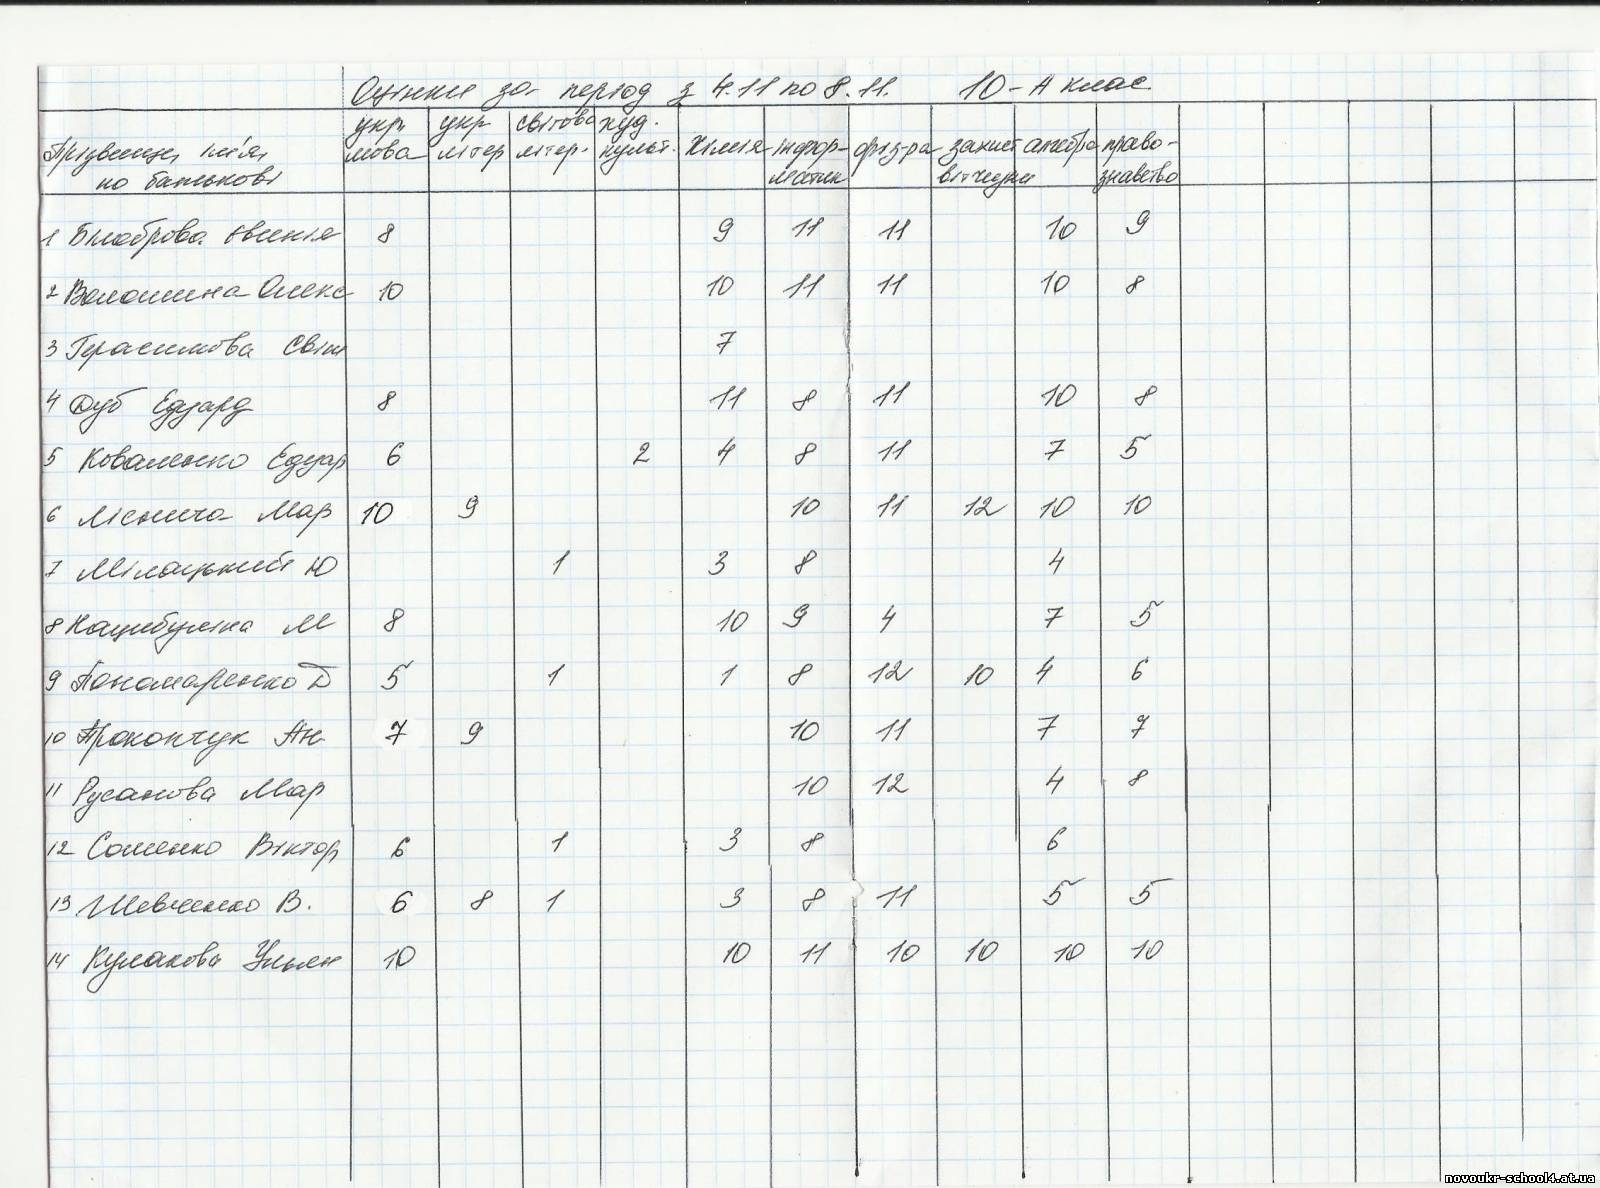 Оцінки за період з 4.11 по 8.11. 10-А клас
Прізвище, ім'я, по батькові укр. мова укр літер світова літер. худ. культ. Хімія інформатик фіз-ра захист вітчизни алгебра правознавство
1 Євгенія 8 9 11 11 10 9
2 Волошина Олекс 10 10 11 11 10 8
3 Герасимова Світ 7
4 Дуб Едуард 8 11 8 11 10 8
5 Коваленко Едуар 6 2 4 8 11 7 5
6 Мар 10 9 10 11 12 10 10
7 Ю 1 3 8 4
8 М 8 10 9 4 7 5
9 Пономаренко Д 5 1 1 8 12 10 4 6
10 Прокопчук Ан 7 9 10 11 7 7
11 Русанова Мар 10 12 4 8
12 Соменко Віктор 6 1 3 8 6
13 Шевченко В. 6 8 1 3 8 11 5 5
14 Кулакова Ульян 10 10 11 10 10 10 10
novoukr-school4.at.ua